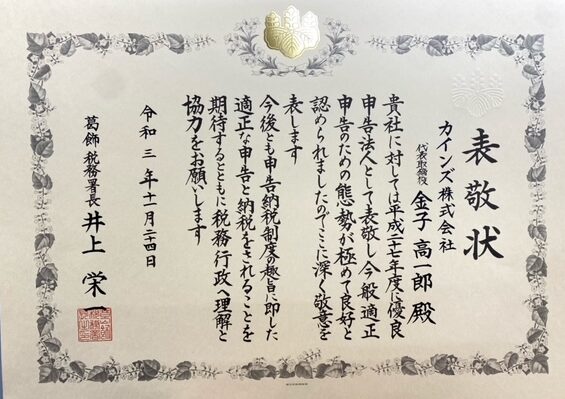 表敬状
カインズ株式会社
代表取締役 金子高一郎殿
貴社に対しては平成二十七年度に優良
申告法人として表敬し今般適正
申告のための態勢が極めて良好と
認められましたのでここに深く敬意を
表します
今後とも申告納税制度の趣旨に即した
適正な申告と納税をされることを
期待するとともに税務行政へ理解と
協力をお願いします
令和三年十一月二十四日
葛飾税務署長 井上栄一